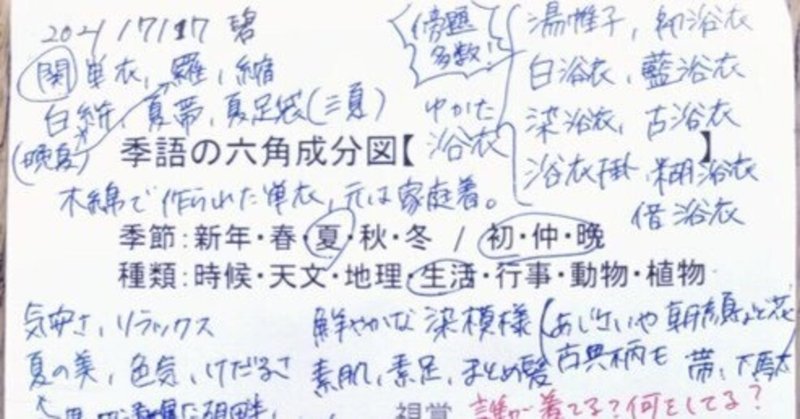 2021/7/17 碧
関 単衣、羅、縮
白絣、夏帯、夏足袋(三夏)
(晩夏)
傍題多数!
湯帷子、初浴衣
白浴衣、藍浴衣
染浴衣、古浴衣
浴衣掛、糊浴衣
借浴衣
ゆかた
季語の六角成分図【浴衣】
木綿で作られた単衣、元は家庭着。
季節:新年・春・夏・秋・冬 / 初・仲・晩
種類:時候・天文・地理・生活・行事・動物・植物
気安さ、リラックス
夏の美、色気、けだるさ
鮮やかな染模様(あじさいや朝顔など花
古典柄も
素肌、素足、まとめ髪
帯、下駄
視覚 誰が着てる?何をしてる?